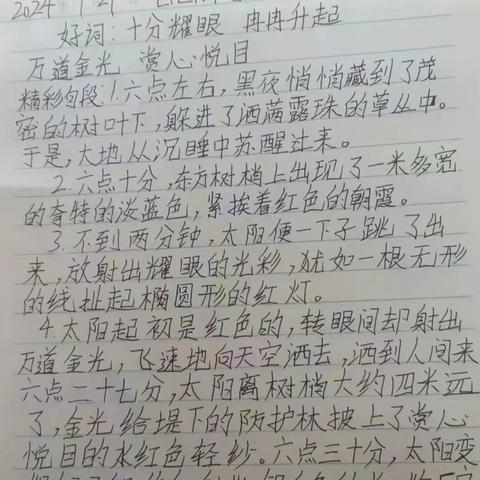 2024
好词:十分耀眼 冉冉升起
万道金光 赏心悦目
精彩句段:1.六点左右,黑夜悄悄藏到了茂
密的树叶下,躲进了洒满露珠的草丛中。
于是,大地从沉睡中苏醒过来。
2.六点十分,东方树梢上出现了一米多宽
的奇特的淡蓝色,紧挨着红色的朝霞。
3.不到两分钟,太阳便一下子跳了出
来,放射出耀眼的光彩,犹如一根无形
的线扯起椭圆形的红灯。
4.太阳起初是红色的,转眼间却射出
万道金光,飞速地向天空洒去,洒到人间来
六点二十七分,太阳离树梢大约四米远
了,金光给堤下的防护林披上了赏心
悦目的水红色轻纱。六点三十分,太阳变